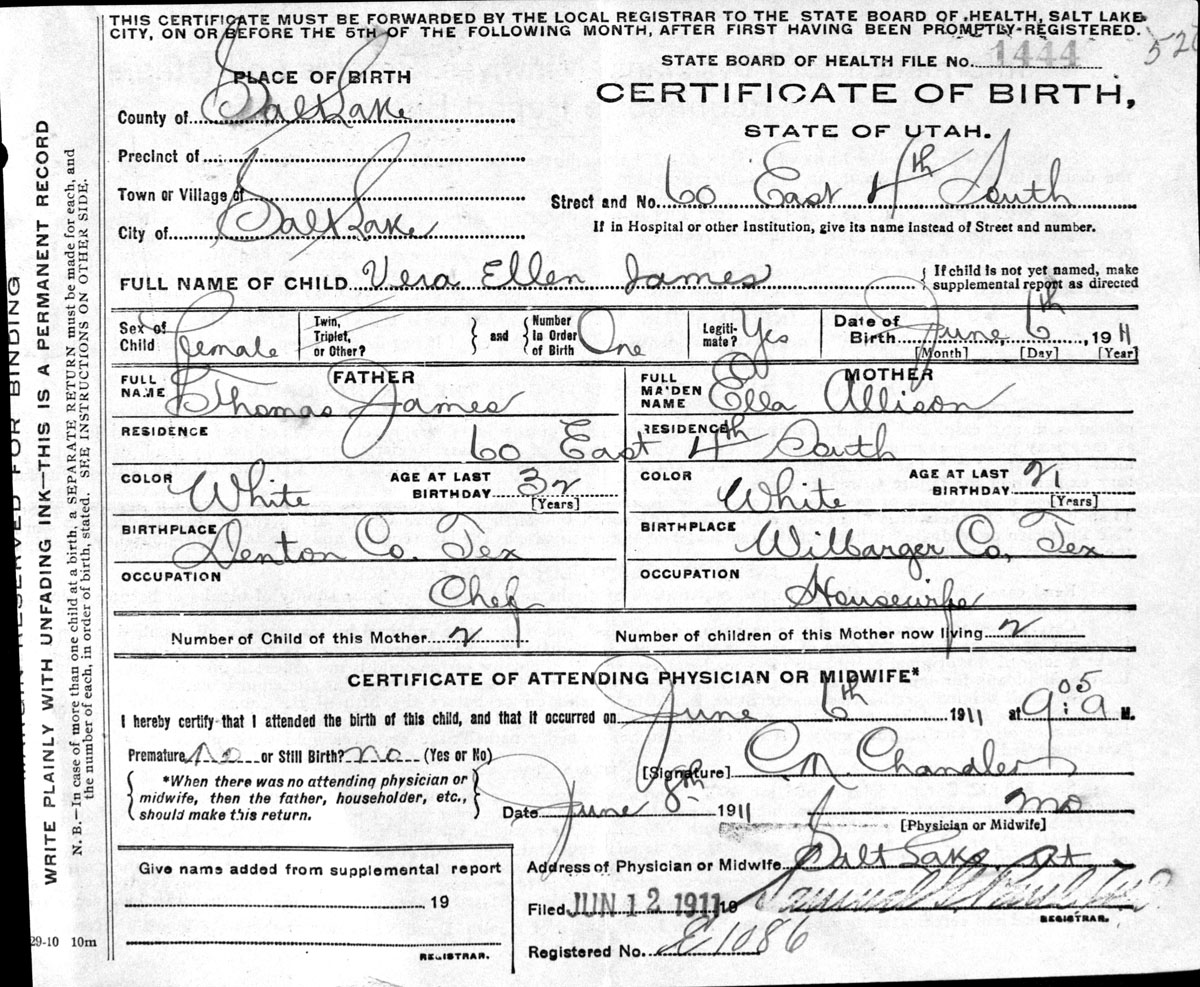 THIS CERTIFICATE MUST BE FORWARDED BY THE LOCAL REGISTRAR TO THE STATE BOARD OF HEALTH, SALT LAKE
CITY, ON OR BEFORE THE 5TH OF THE FOLLOWING MONTH, AFTER FIRST HAVING BEEN PROMPTLY REGISTERED.
STATE BOARD OF HEALTH FILE No. 1444
PLACE OF BIRTH
CERTIFICATE OF BIRTH,
STATE OF UTAH.
County of Salt Lake
Precinct of
Town or Village of
Street and No. 60 East 4th South
City of Salt Lake
If in Hospital or other Institution, give its name instead of Street and number.
FULL NAME OF CHILD Vera Ellen James
If child is not yet named, make
supplemental report as directed
Sex of Child Female
Twin, Triplet, or Other?
and
Number in Order of Birth One
Legiti-mate? Yes
Date of Birth June, 6th, 1911
[Month] [Day] [Year]
FATHER
FULL NAME Thomas James
MOTHER
FULL MAIDEN NAME Ella Allison
RESIDENCE 60 East 4th South RESIDENCE
COLOR White AGE AT LAST BIRTHDAY 32 [Years]
COLOR White AGE AT LAST BIRTHDAY 21 [Years]
BIRTHPLACE Denton Co. Tex
BIRTHPLACE Wilbarger Co, Tex
OCCUPATION Chef
OCCUPATION Housewife
Number of Child of this Mother 2
Number of children of this Mother now living 2
CERTIFICATE OF ATTENDING PHYSICIAN OR MIDWIFE*
I hereby certify that I attended the birth of this child, and that it occurred on June 6th 1911 at 9:05 a M.
Premature No or Still Birth? No (Yes or No)
[Signature] C M. Chandler
*When there was no attending physician or
midwife, then the father, householder, etc.,
should make this return.
Date June 8th 1911
MD
[Physician or Midwife]
Address of Physician or Midwife Salt Lake
Give name added from supplemental report
19
REGISTRAR.
Filed JUN 12 1911 19
REGISTRAR.
Registered No. E1086
MARGIN RESERVED FOR BINDING
WRITE PLAINLY WITH UNFADING INK—THIS IS A PERMANENT RECORD
N. B.—In case of more than one child at a birth, a SEPARATE RETURN must be made for each, and
the number of each, in order of birth, stated. SEE INSTRUCTIONS ON OTHER SIDE.
29-10 10m